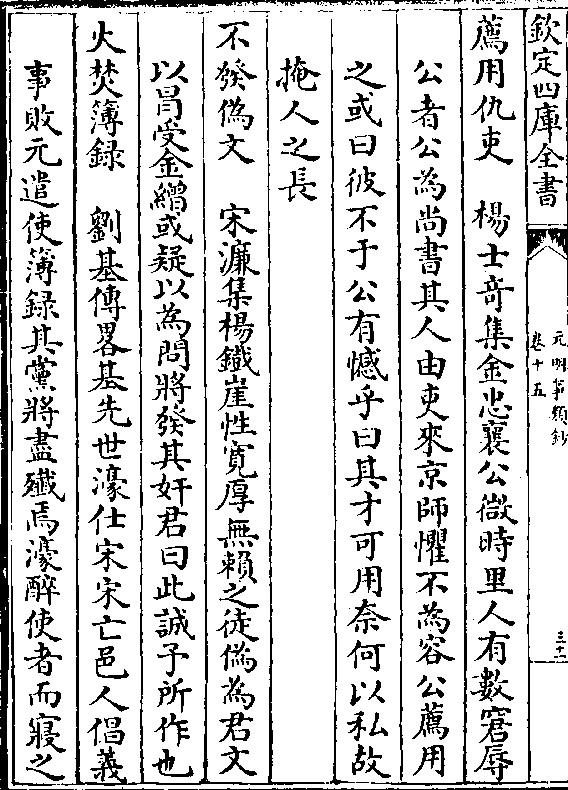 欽定四庫全書
元明事類鈔
卷十五
三十二
薦用仇吏　楊士奇集金忠襄公微時里人有數窘辱
公者公為尚書其人由吏來京師懼不為容公薦用
之或曰彼不于公有憾乎曰其才可用奈何以私故
掩人之長
不發偽文　宋濂集楊鐵崖性寛厚無賴之徒偽為君文
以冒受金繒或疑以為問將發其奸君曰此誠予所作也
火焚簿録　劉基傳畧基先世濠仕宋宋亡邑人倡義
事敗元遣使簿録其黨將盡殱焉濠醉使者而寢之